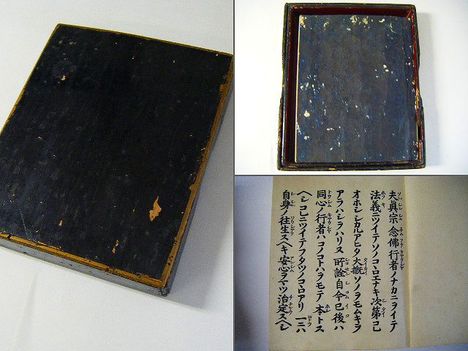 夫眞宗念佛行者ノナカニヲイテ
法義ニツイテソノコヽロエナキ次第コレ
オホシシカルアヒタ大概ソノヲモムキヲ
アラハシヲハリヌ所詮自今已後ハ
同心ノ行者ハコノコトハヲモテ本トス
ヘシコレニツイテフタツノコヽロアリ一ニハ
自身ノ往生スヘキ安心ヲマツ治定スヘシ